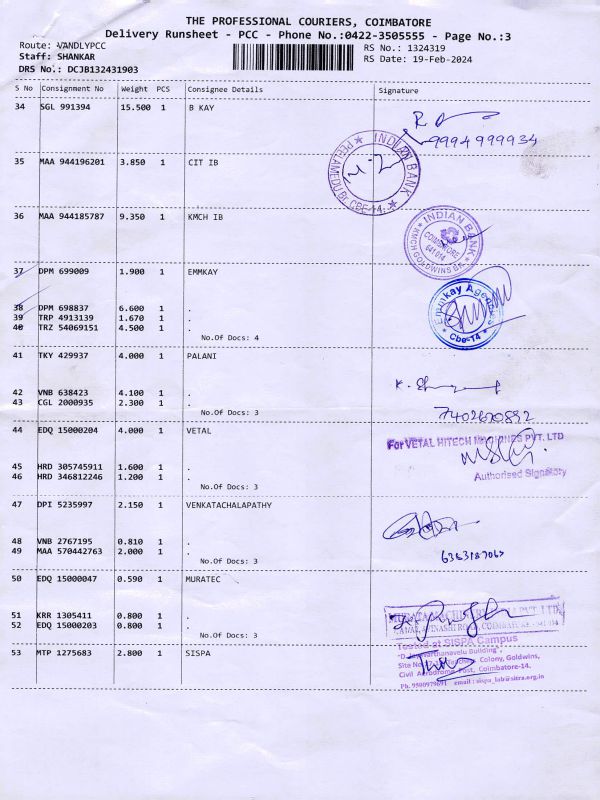 THE PROFESSIONAL COURIERS, COIMBATORE
Delivery Runsheet - PCC - Phone No.:0422-3505555 - Page No.:3
Route: VANDLYPCC
RS No.: 1324319
Staff: SHANKAR
RS Date: 19-Feb-2024
DRS No.: DCJB132431903
S No Consignment No Weight PCS Consignee Details Signature
34 SGL 991394 15.500 1 B KAY
9994999934
35 MAA 944196201 3.850 1 CIT IB
INDIAN BANK
CBE-14
36 MAA 944185787 9.350 1 KMCH IB
INDIAN BANK
COIMBATORE
641 014
KMCH GOLDWINS BR.
37 DPM 699009 1.900 1 EMMKAY
Emmkay Agencies
Cbe-14
38 DPM 698837 6.600 1 .
39 TRP 4913139 1.670 1 .
40 TRZ 54069151 4.500 1 .
No.Of Docs: 4
41 TKY 429937 4.000 1 PALANI
42 VNB 638423 4.100 1 .
43 CGL 2000935 2.300 1 .
No.Of Docs: 3
7402620892
44 EDQ 15000204 4.000 1 VETAL
For VETAL HITECH MACHINES PVT. LTD
45 HRD 305745911 1.600 1 .
46 HRD 346812246 1.200 1 .
Authorised Signatory
No.Of Docs: 3
47 DPI 5235997 2.150 1 VENKATACHALAPATHY
48 VNB 2767195 0.810 1 .
49 MAA 570442763 2.000 1 .
No.Of Docs: 3
50 EDQ 15000047 0.590 1 MURATEC
51 KRR 1305411 0.800 1 .
52 EDQ 15000203 0.800 1 .
No.Of Docs: 3
53 MTP 1275683 2.800 1 SISPA
Tested at SISPA Campus
Colony, Goldwins,
Civil Aerodrome Post, Coimbatore-14.
email : sispa_lab@sitra.org.in